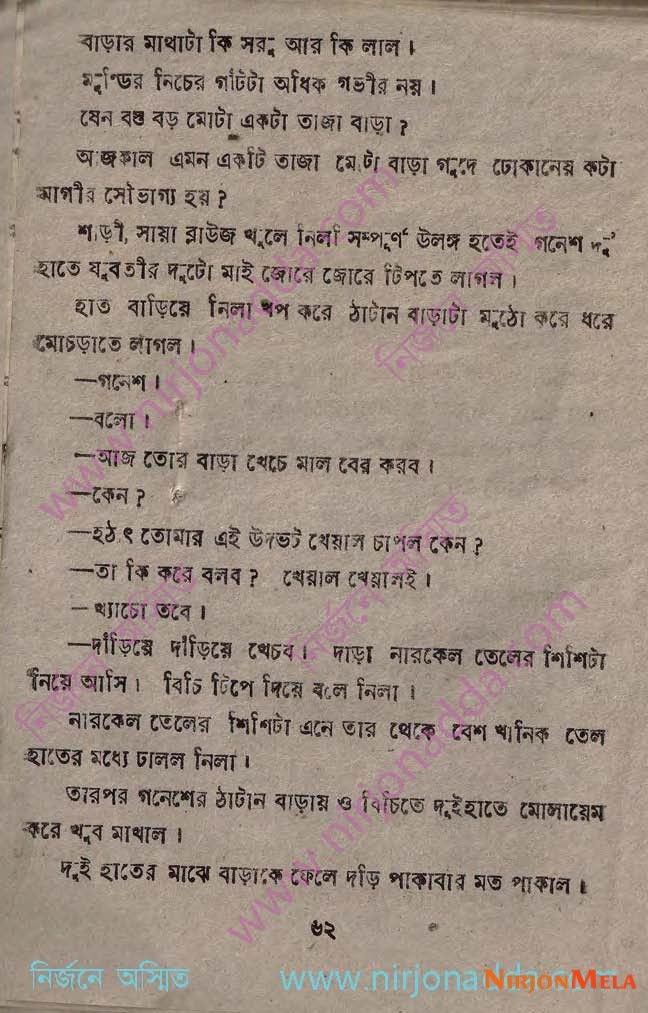 বাড়ার মাথাটা কি সরু আর কি লাল।
মুণ্ডির নিচের গাঁটটা অধিক গভীর নয়।
যেন বড় মোটা একটা তাজা বাড়া?
আজকাল এমন একটি তাজা মোটা বাড়া গুদে ঢোকানোর কটা
মাগীর সৌভাগ্য হয়?
শাড়ী, সায়া ব্লাউজ খুলে নিলা সম্পূর্ণ উলঙ্গ হতেই গনেশ দু'
হাতে যুবতীর দুটো মাই জোরে জোরে টিপতে লাগল।
হাত বাড়িয়ে নিলা খপ করে ঠাটান বাড়াটা মুঠো করে ধরে
মোচড়াতে লাগল।
—গনেশ।
—বলো।
—আজ তোর বাড়া খেচে মাল বের করব।
—কেন?
—হঠাৎ তোমার এই উদ্ভট খেয়াল চাপল কেন?
—তা কি করে বলব? খেয়াল খেয়ালই।
—খ্যাচো তবে।
—দাঁড়িয়ে দাঁড়িয়ে খেচব। দাড়া নারকেল তেলের শিশিটা
নিয়ে আসি। বিচি টিপে দিয়ে বলে নিলা।
নারকেল তেলের শিশিটা এনে তার থেকে বেশ খানিক তেল
হাতের মধ্যে ঢালল নিলা।
তারপর গনেশের ঠাটান বাড়ায় ও বিচিতে দুইহাতে মোলায়েম
করে খুব মাখাল।
দুই হাতের মাঝে বাড়াকে ফেলে দড়ি পাকাবার মত পাকাল।
৬২
নির্জনে অস্মিত www.nirjonadda.com
NIRJONMELA